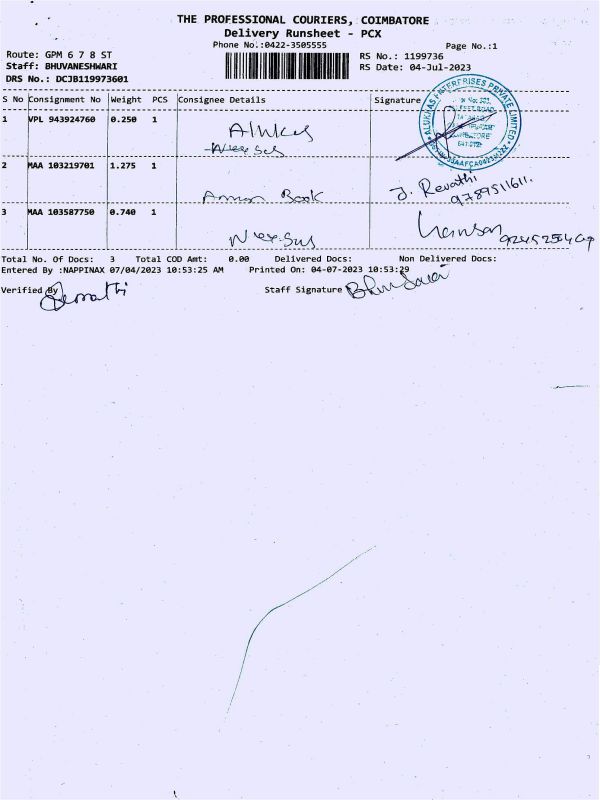 THE PROFESSIONAL COURIERS, COIMBATORE
Delivery Runsheet - PCX
Phone No.:0422-3505555
Page No.:1
Route: GPM 6 7 8 ST
RS No.: 1199736
Staff: BHUVANESHWARI
RS Date: 04-Jul-2023
DRS No.: DCJB119973601
S No Consignment No Weight PCS Consignee Details Signature
1 VPL 943924760 0.250 1
ALUKKAS ENTERPRISES PRIVATE LIMITED
2 MAA 103219701 1.275 1 Book J. Revathi
9789511611.
3 MAA 103587750 0.740 1
Total No. Of Docs: 3 Total COD Amt: 0.00 Delivered Docs: Non Delivered Docs:
Entered By :NAPPINAX 07/04/2023 10:53:25 AM Printed On: 04-07-2023 10:53:29
Verified By Staff Signature